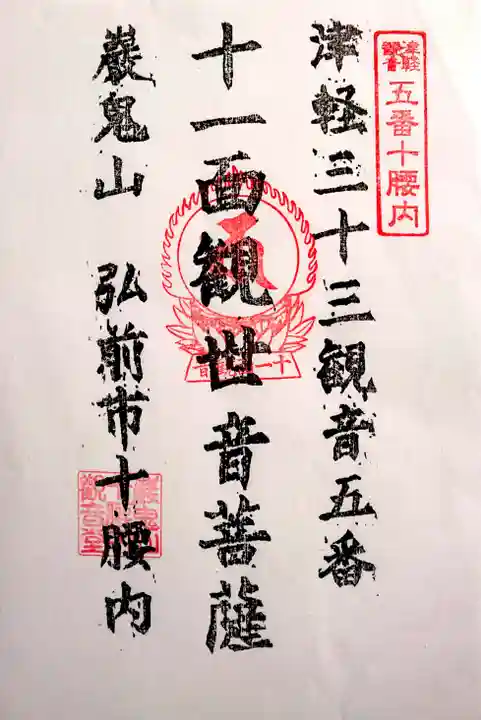 津軽観音
五番十腰内
津軽三十三観音五番
十一面観世音菩薩
巌鬼山 弘前市十腰内